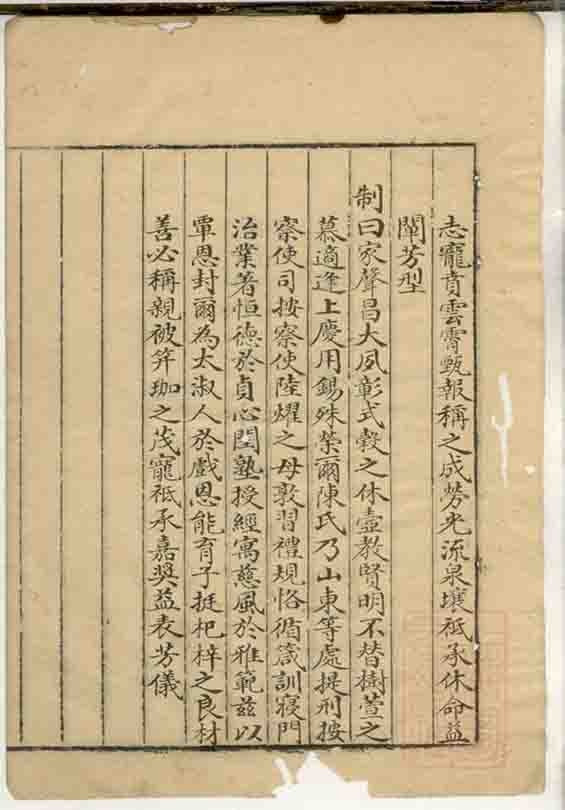 志寵賁雲霄甄報稱之成勞光流泉壤祗承休命益
闡芳型
制曰家聲昌大夙彰式穀之休壼教賢明不替樹萱之
慕適逢上慶用錫殊榮爾陳氏乃山東等處提刑按
察使司按察使陸燿之母敦習禮規恪循箴訓寢門
治業著恒德於貞心閨塾授經寓慈風於雅範茲以
覃恩封爾為太淑人於戲恩能育子挺杞梓之良材
善必稱親被笄珈之茂寵祗承嘉奬益表芳儀